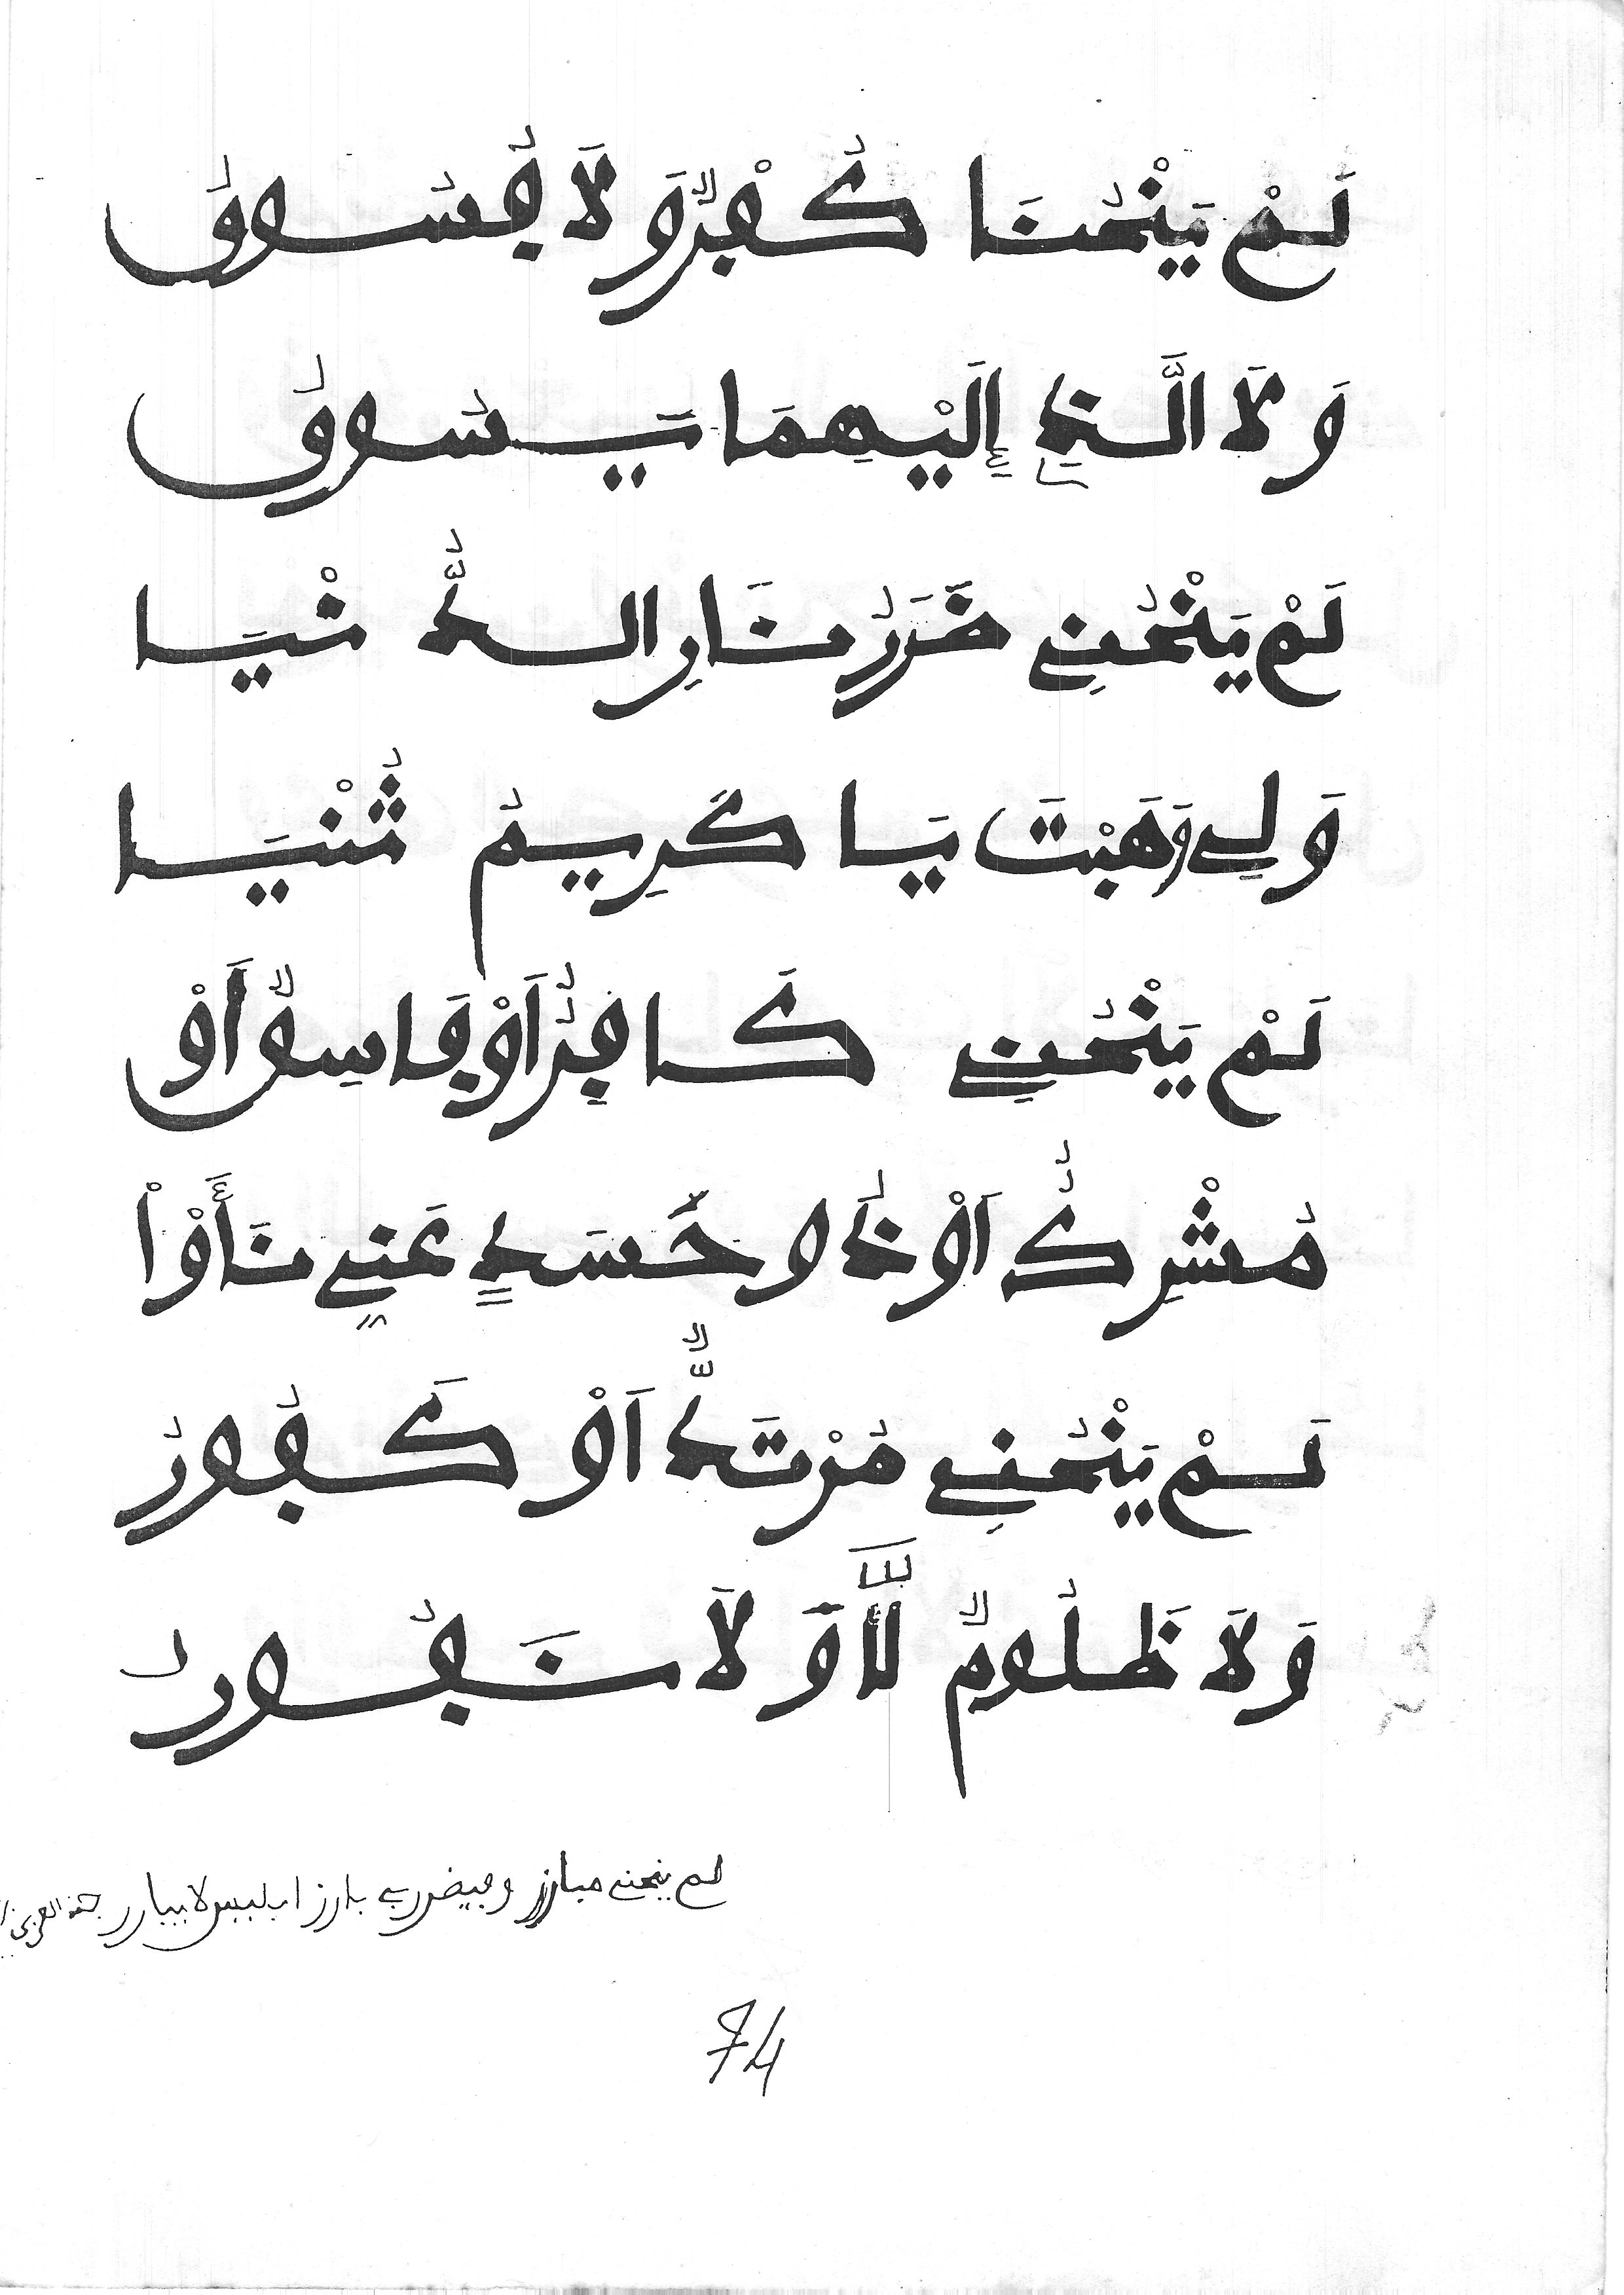 لَمْ يَنْحُنَا كُفْرٌ وَلَا فُسُوقُ
وَلَا الَّذِي إِلَيْهِمَا يَسُوقُ
لَمْ يَنْحُنِي ضَرَرُ نَارِ الدُّنْيَا
وَلِي وَهَبْتَ يَا كَرِيمُ ثُنْيَا
لَمْ يَنْحُنِي كَافِرٌ أَوْ فَاسِقٌ أَوْ
مُشْرِكٌ أَوْ ذُو حَسَدٍ عَنِّي نَأَوْا
لَمْ يَنْحُنِي مُرْتَدٌّ أَوْ كَفُورُ
وَلَا ظَلُومٌ لَّا وَلَا نَفُورُ
لم ينحني مبارز وبيض ربي بارز ابليس لا يبارز
74